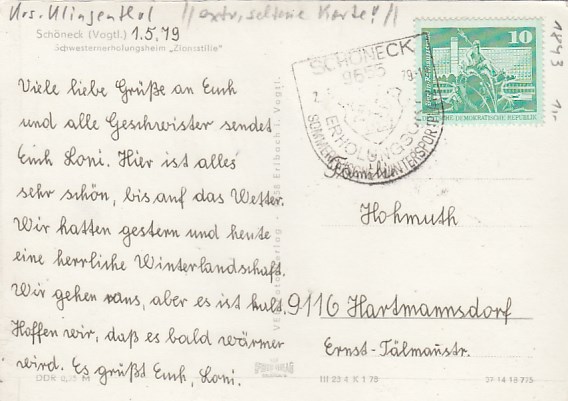 Krs. Klingenthal //extr. seltene Karte!//
Schöneck (Vogtl.) 1.5.79
Schwesternerholungsheim „Zionsstille"
Viele liebe Grüße an Euch
und alle Geschwister sendet
Euch Loni. Hier ist alles
sehr schön, bis auf das Wetter.
Wir hatten gestern und heute
eine herrliche Winterlandschaft.
Wir gehen raus, aber es ist kalt.
Hoffen wir, daß es bald wärmer
wird. Es grüßt Euch, Loni.
DDR 0,15 M
III 23 4 K 1 79
SCHÖNECK
9655
ERHOLUNGSORT
10
DEUTSCHE DEMOKRATISCHE REPUBLIK
1843
Familie
Hohmuth
9116 Hartmannsdorf
Ernst-Tälmannstr.